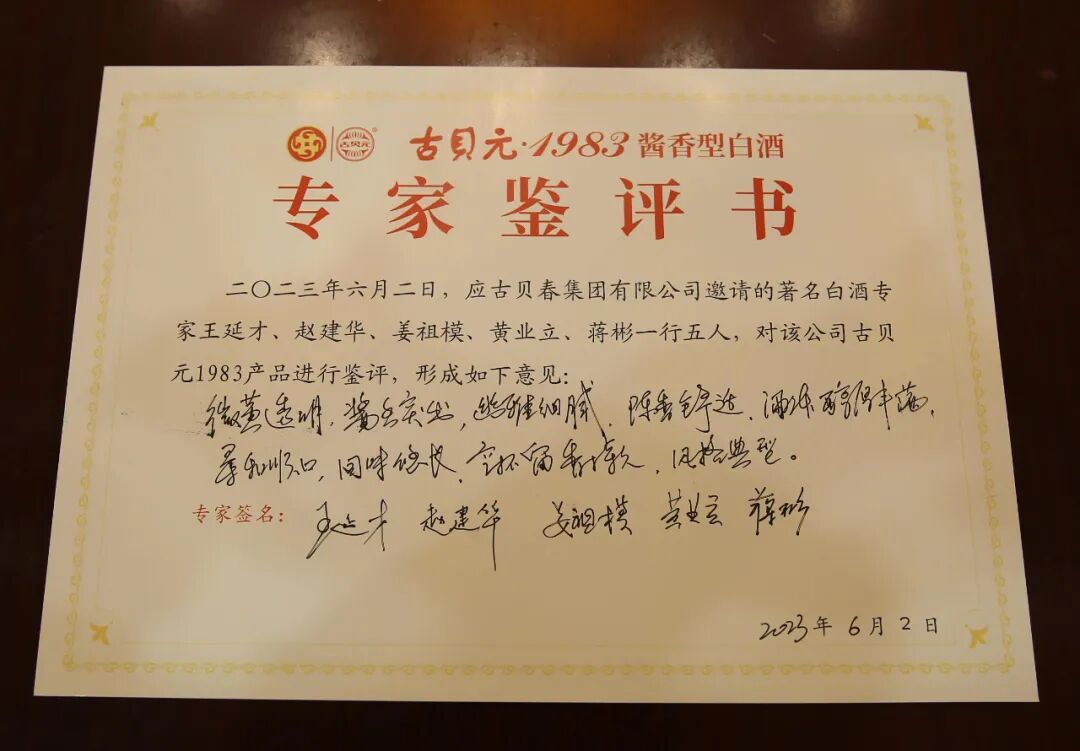 古贝元
古贝元·1983酱香型白酒
专家鉴评书
二〇二三年六月二日，应古贝春集团有限公司邀请的著名白酒专
家王延才、赵建华、姜祖模、黄业立、蒋彬一行五人，对该公司古贝
元1983产品进行鉴评，形成如下意见：
微黄透明，酱香突出，幽雅细腻，陈香舒适，酒体醇厚丰满，
柔和顺口，回味悠长，空杯留香持久，风格典型。
专家签名： 王延才 赵建华 姜祖模 黄业立 蒋彬
2023年6月2日